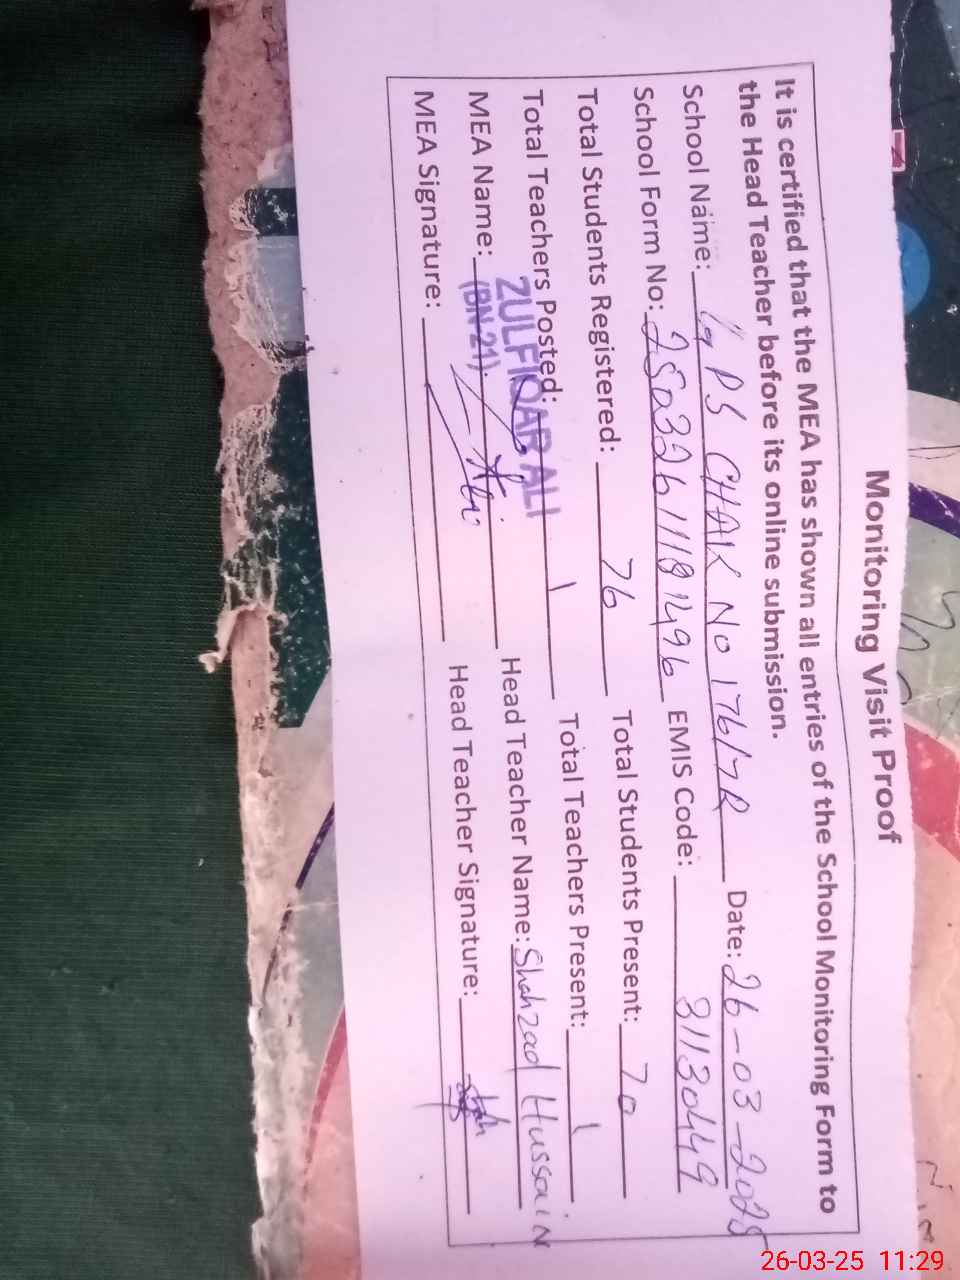 Monitoring Visit Proof
It is certified that the MEA has shown all entries of the School Monitoring Form to
the Head Teacher before its online submission.
School Name: GPS CHAK NO 176/7R Date: 26-03-2025
School Form No: EMIS Code: 31130449
Total Students Registered: 76 Total Students Present: 70
Total Teachers Posted: 1 Total Teachers Present: 1
MEA Name: ZULFIQAR ALI (BN 21) Head Teacher Name: Shahzad Hussain
MEA Signature: Head Teacher Signature:
26-03-25 11:29